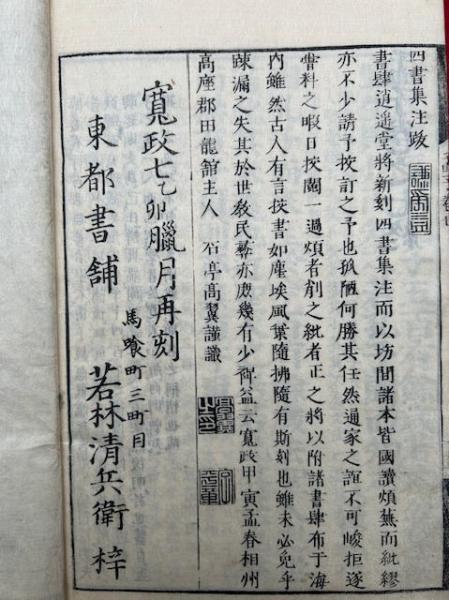 四書集注跋
書肆逍遥堂將新刻四書集注而以坊間諸本皆國讀煩蕪而紕繆
亦不少請予挍訂之予也孤陋何勝其任然通家之誼不可峻拒遂
嘗料之暇日挍閲一過煩者削之紕者正之將以附諸書肆布于海
内雖然古人有言挍書如塵埃風葉隨拂隨有斯刻也雖未必免乎
踈漏之失其於世敎民彝亦庶幾有少裨益云寛政甲寅孟春相州
高座郡田龍舘主人 石亭高翼謹識
寛政七乙卯臘月再刻
馬喰町三町目
東都書舗 若林清兵衛 梓